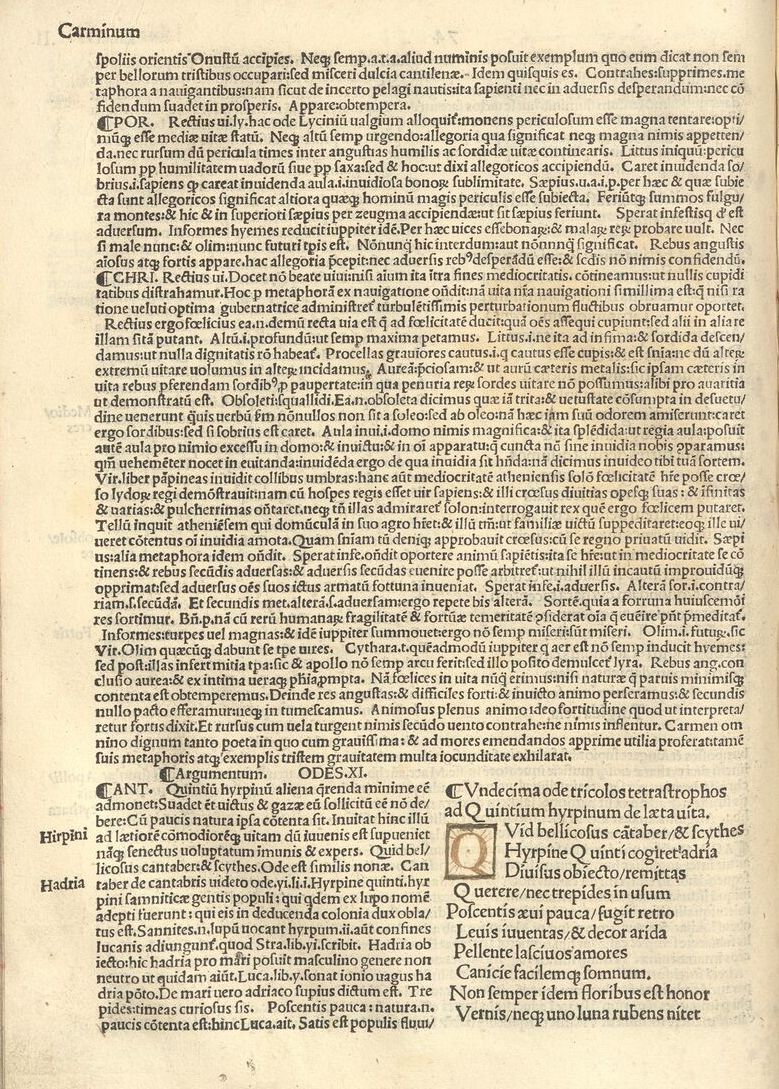 Carminum
spoliis orientis Onustū accipies. Neq; semp.a.t.a.aliud numinis posuit exemplum quo eum dicat non sem
per bellorum tristibus occupari:sed misceri dulcia cantilenæ. Idem quisquis es. Contrahes:supprimes.me
taphora a nauigantibus:nam sicut de incerto pelagi nautis:ita sapienti nec in aduersis desperandum:nec cō
fidendum suadet in prosperis. Appare:obtempera.
¶POR. Rectius ui.ly.hac ode Lyciniū ualgium alloquit̄:monens periculosum esse magna tentare:opti/
mūq; esse mediæ uitæ statū. Neq; altū semp urgendo:allegoria qua significat neq; magna nimis appeten/
da.nec rursum dū pericula times inter angustias humilis ac sordidæ uitæ continearis. Littus iniquū:pericu
losum pp humilitatem uadorū siue pp saxa:sed & hoc:ut dixi allegoricos accipiendū. Caret inuidenda so/
brius.i.sapiens q̄ careat inuidenda aula.i.inuidiosa bonoꝝ sublimitate. Sæpius.u.a.i.p.per hæc & quæ subie
cta sunt allegoricos significat altiora quæq; hominū magis periculis esse subiecta. Feriūtq; summos fulgu/
ra montes:& hic & in superiori sæpius per zeugma accipiendæ:ut sit sæpius feriunt. Sperat infestisq; d' est
aduersum. Informes hyemes reducit:iuppiter idē.Per hæc uices esse:bonaꝝ:& malaꝝ reꝝ probare uult. Nec
si male nunc:& olim:nunc futuri tp̄is est. Nōnunq̄ hic interdum:aut nōnnnq̄ significat. Rebus angustis
aīosus atq; fortis appare.hac allegoria p̄cepit:nec aduersis reb⁹ desperādū esse:& sedis nō nimis confidendū.
¶CHRI. Rectius ui.Docet nō beate uiui:nisi aium ita ītra fines mediocritatis. cōtineamus:ut nullis cupidi
tatibus distrahamur.Hoc p metaphorā ex nauigatione on̄dit:nā uita nr̄a nauigationi simillima est:q̄ nisi ra
tione ueluti optima gubernatrice administret̄ turbulētissimis perturbationum fluctibus obruamur oportet.
Rectius ergo fœlicius ea.n.demū recta uia est q̄ ad fœlicitatē ducit:quā oēs assequi cupiunt:sed alii in alia re
illam sitā putant. Altū.i.profundū:ut semp maxima petamus. Littus.i.ne ita ad infima:& sordida descen/
damus:ut nulla dignitatis rō habeat̄. Procellas grauiores cautus.i.q cautus esse cupis:& est sn̄ia:ne dū alteꝝ
extremū uitare uolumus in alteꝝ incidamus. Aureā:p̄ciosam:& ut aurū cæteris metalis:sic ipsam cæteris in
uita rebus pferendam sordib⁹,p paupertate:in qua penuria reꝝ sordes uitare nō possumus:alibi pro auaritia
ut demonstratū est. Obsoleti:squallidi.Ea.n.obsoleta dicimus quæ iā trita:& uetustate cōsumpta in desuetu/
dine uenerunt q̄uis uerbū s̄m nōnullos non sit a soleo:sed ab oleo:nā hæc iam suū odorem amiserunt:caret
ergo sordibus:sed si sobrius est caret. Aula inui.i.domo nimis magnifica:& ita splēdida:ut regia aula:posuit
autē aula pro nimio excessu in domo:& inuictu:& in oī apparatu:q̄ cuncta nō sine inuidia nobis ꝯparamus:
qm̄ uehemēter nocet in euitanda:inuidēda ergo de qua inuidia sit hn̄da:nā dicimus inuideo tibi tuā sortem.
Vir.liber pāpineas inuidit collibus umbras:hanc aūt mediocritatē atheniensis solō fœlicitatē hr̄e posse crœ/
so lydoꝝ regi demōstrauit:nam cū hospes regis esset uir sapiens:& illi crœsus diuitias opesq; suas:& īfinitas
& uarias:& pulcherrimas on̄taret.neq; tn̄ illas admiraret̄ solon:interrogauit rex quē ergo fœlicem putaret.
Tellū inquit atheniēsem qui domūculā in suo agro hr̄et:& illū tm̄:ut familiæ uictū suppeditaret:eoq; ille ui/
ueret cōtentus oī inuidia amota.Quam sn̄iam tū deniq; approbauit crœsus:cū se regno priuatū uidit. Sæpi
us:alia metaphora idem on̄dit. Sperat infe.on̄dit oportere animū sapiētis:ita se hr̄e:ut in mediocritate se cō
tinens:& rebus secūdis aduersas:& aduersis secūdas euenire posse arbitret̄:ut nihil illū incautū improuidūq;
opprimat:sed aduersus oēs suos ictus armatū fottuna inueniat. Sperat infe.i.aduersis. Alterā sor.i.contra/
riam.s.secūdā. Et secundis met.alterā.s.aduersam:ergo repete bis alterā. Sortē.quia a forruna huiuscemōi
res sortimur. Bn̄.p.nā cū rerū humanaꝝ fragilitatē & fortūæ temeritatē ꝯsiderat oīa q̄ euēire pn̄t p̄meditat̄.
Informes:turpes uel magnas:& idē iuppiter summouet:ergo nō semp miseri:sūt miseri. Olim.i.futuꝝ.sic
Vir.Olim quæcūq; dabunt se tpe uires. Cythara.t.quēadmodū iuppiter q aer est nō semp inducit hyemes:
sed post:illas infert mitia tpa:sic & apollo nō semp arcu ferit:sed illo posito demulcet̄ lyra. Rebus ang.con
clusio aurea:& ex intima ueraq; ph̄ia,prompta. Nā fœlices in uita nūq̄ erimus:nisi naturæ q̄ paruis minimisq;
contenta est obtemperemus.Deinde res angustas:& difficiles forti:& inuicto animo perferamus:& secundis
nullo pacto efferamur:neq; in tumescamus. Animosus plenus animo ideo fortitudine quod ut interpreta/
retur fortis dixit.Et rursus cum uela turgent nimis secūdo uento contrahe:ne nimis inflentur. Carmen om
nino dignum tanto poeta in quo cum grauissima:& ad mores emendandos apprime utilia proferat:tamē
suis metaphoris atq; exemplis tristem grauitatem multa iocunditate exhilarat.
¶Argumentum. ODES.XI.
¶ANT. Quintiū hyrpinū aliena q̄renda minime eē
admonet:Suadet ēt uictus & gazæ eū sollicitū eē nō de/
bere:Cū paucis natura ipsa cōtenta sit. Inuitat hinc illū
Hirpini
ad lætiorē cōmodiorēq; uitam dū iuuenis est supueniet
nāq; senectus uoluptatum īmunis & expers. Quid bel/
licosus cantaber:& scythes.Ode est similis nonæ. Can
Hadria
taber de cantabris uideto ode.yi.li.i.Hyrpine quinti.hyr
pini samniticæ gentis populi:qui qdem ex lupo nomē
adepti fuerunt:qui eis in deducenda colonia dux obla/
tus est.Sannites.n.lupū uocant hyrpum.ii.aūt confines
lucanis adiungunt̄.quod Stra.lib.yi.scribit. Hadria ob
iecto:hic hadria pro mari posuit masculino genere non
neutro ut quidam aiūt.Luca.lib.y.sonat ionio uagus ha
dria pōto.De mari uero adriaco supius dictum est. Tre
pides:timeas curiosus sis. Poscentis pauca:natura.n.
paucis cōtenta est:hinc Luca.ait. Satis est populis fluui/
¶Vndecima ode tricolos tetrastrophos
ad Quintium hyrpinum de læta uita.
Quid bellicosus cātaber/& scythes
Hyrpine Quinti cogitet adria
Diuisus obiecto/remittas
Querere/nec trepides in usum
Poscentis æui pauca/fugit retro
Leuis iuuentas/& decor arida
Pellente lasciuos amores
Canicie facilemq; somnum.
Non semper idem floribus est honor
Vernis/neq; uno luna rubens nitet